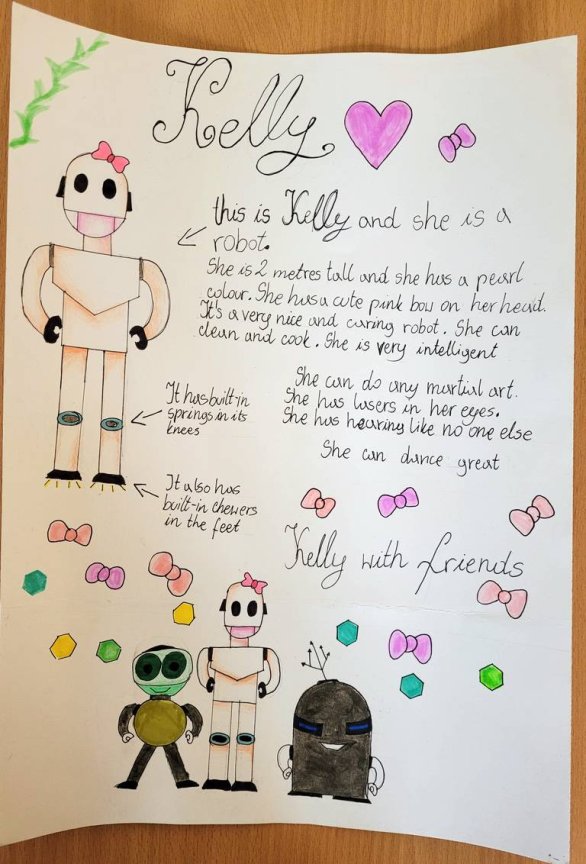 Kelly
this is Kelly and she is a
robot.
She is 2 metres tall and she has a pearl
colour. She has a cute pink bow on her head.
It's a very nice and caring robot. She can
clean and cook. She is very intelligent
She can do any martial art.
She has lasers in her eyes.
She has hearing like no one else
She can dance great
It has built-in
springs in its
knees
It also has
built-in chewers
in the feet
Kelly with friends